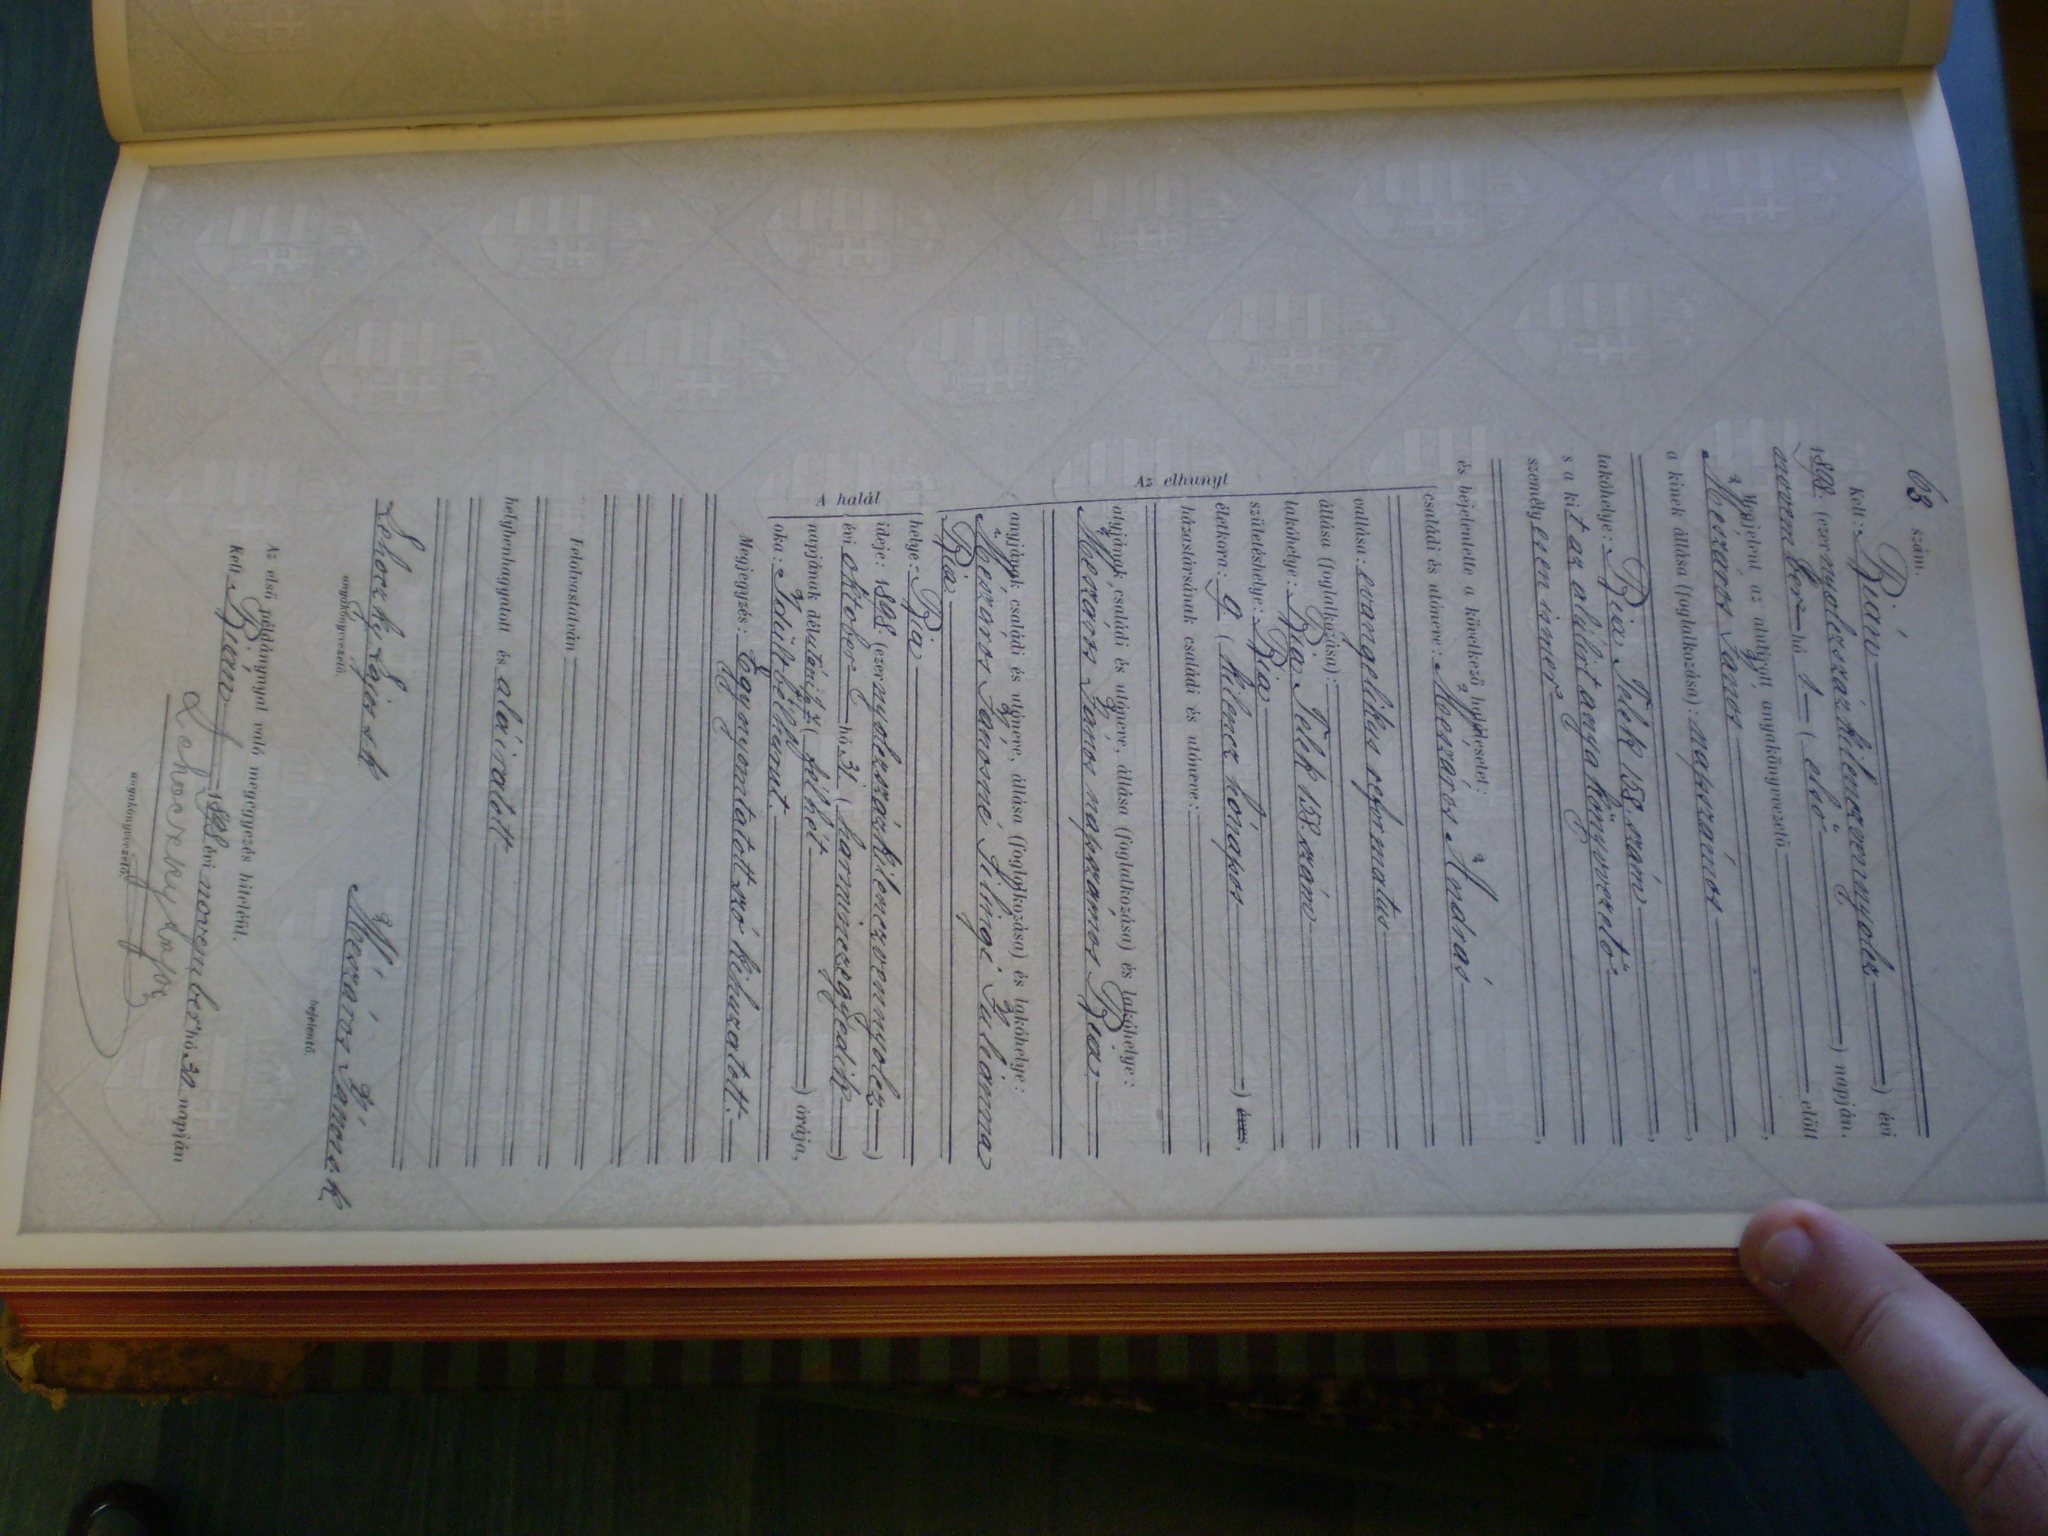 63 szám.
Kelt: Bián 
1898. (ezernyolczszázkilenczvennyolcz) évi
november hó 1 (első) napján.
Megjelent az alulírott anyakönyvezető előtt
Meszáros János,
a kinek állása (foglalkozása): napszámos,
lakóhelye: Bia Telek 158. szám,
s a kit az alulirt anyakönyvvezető
személyesen ismer,
és bejelentette a következő halálesetet:
Az elhunyt
családi és utóneve: Meszáros András
vallása: evangelikus reformatus
állása (foglalkozása):
lakóhelye: Bia Telek 158. szám
születéshelye: Bia
életkora: 9 (kilencz hónapos) éves.
házastársának családi és utóneve:
atyjának családi és utóneve, állása (foglalkozása) és lakóhelye:
Meszáros János napszámos Bia
anyjának családi és utóneve, állása (foglalkozása) és lakóhelye:
Meszáros Jánosné Julianna
Bia
A halál
helye: Bia
ideje: 1898 (ezernyolczszázkilenczvennyolcz)
évi október hó 31 (harminczegyedik)
napjának délutáni ½7 (fél hét) órája,
oka: Idült bélhurut.
Megjegyzés: Egy nyomtatott szó kihuzatott.
Felolvastatván
helybenhagyatott és aláiratott
Lehoczky Lajos s.k.
anyakönyvvezető.
Mészáros János s.k.
bejelentő.
Az első példánynyal való megegyezés hiteléül.
Kelt Bián 1898 évi november hó 30 napján
Lehoczky Lajos
anyakönyvvezető.